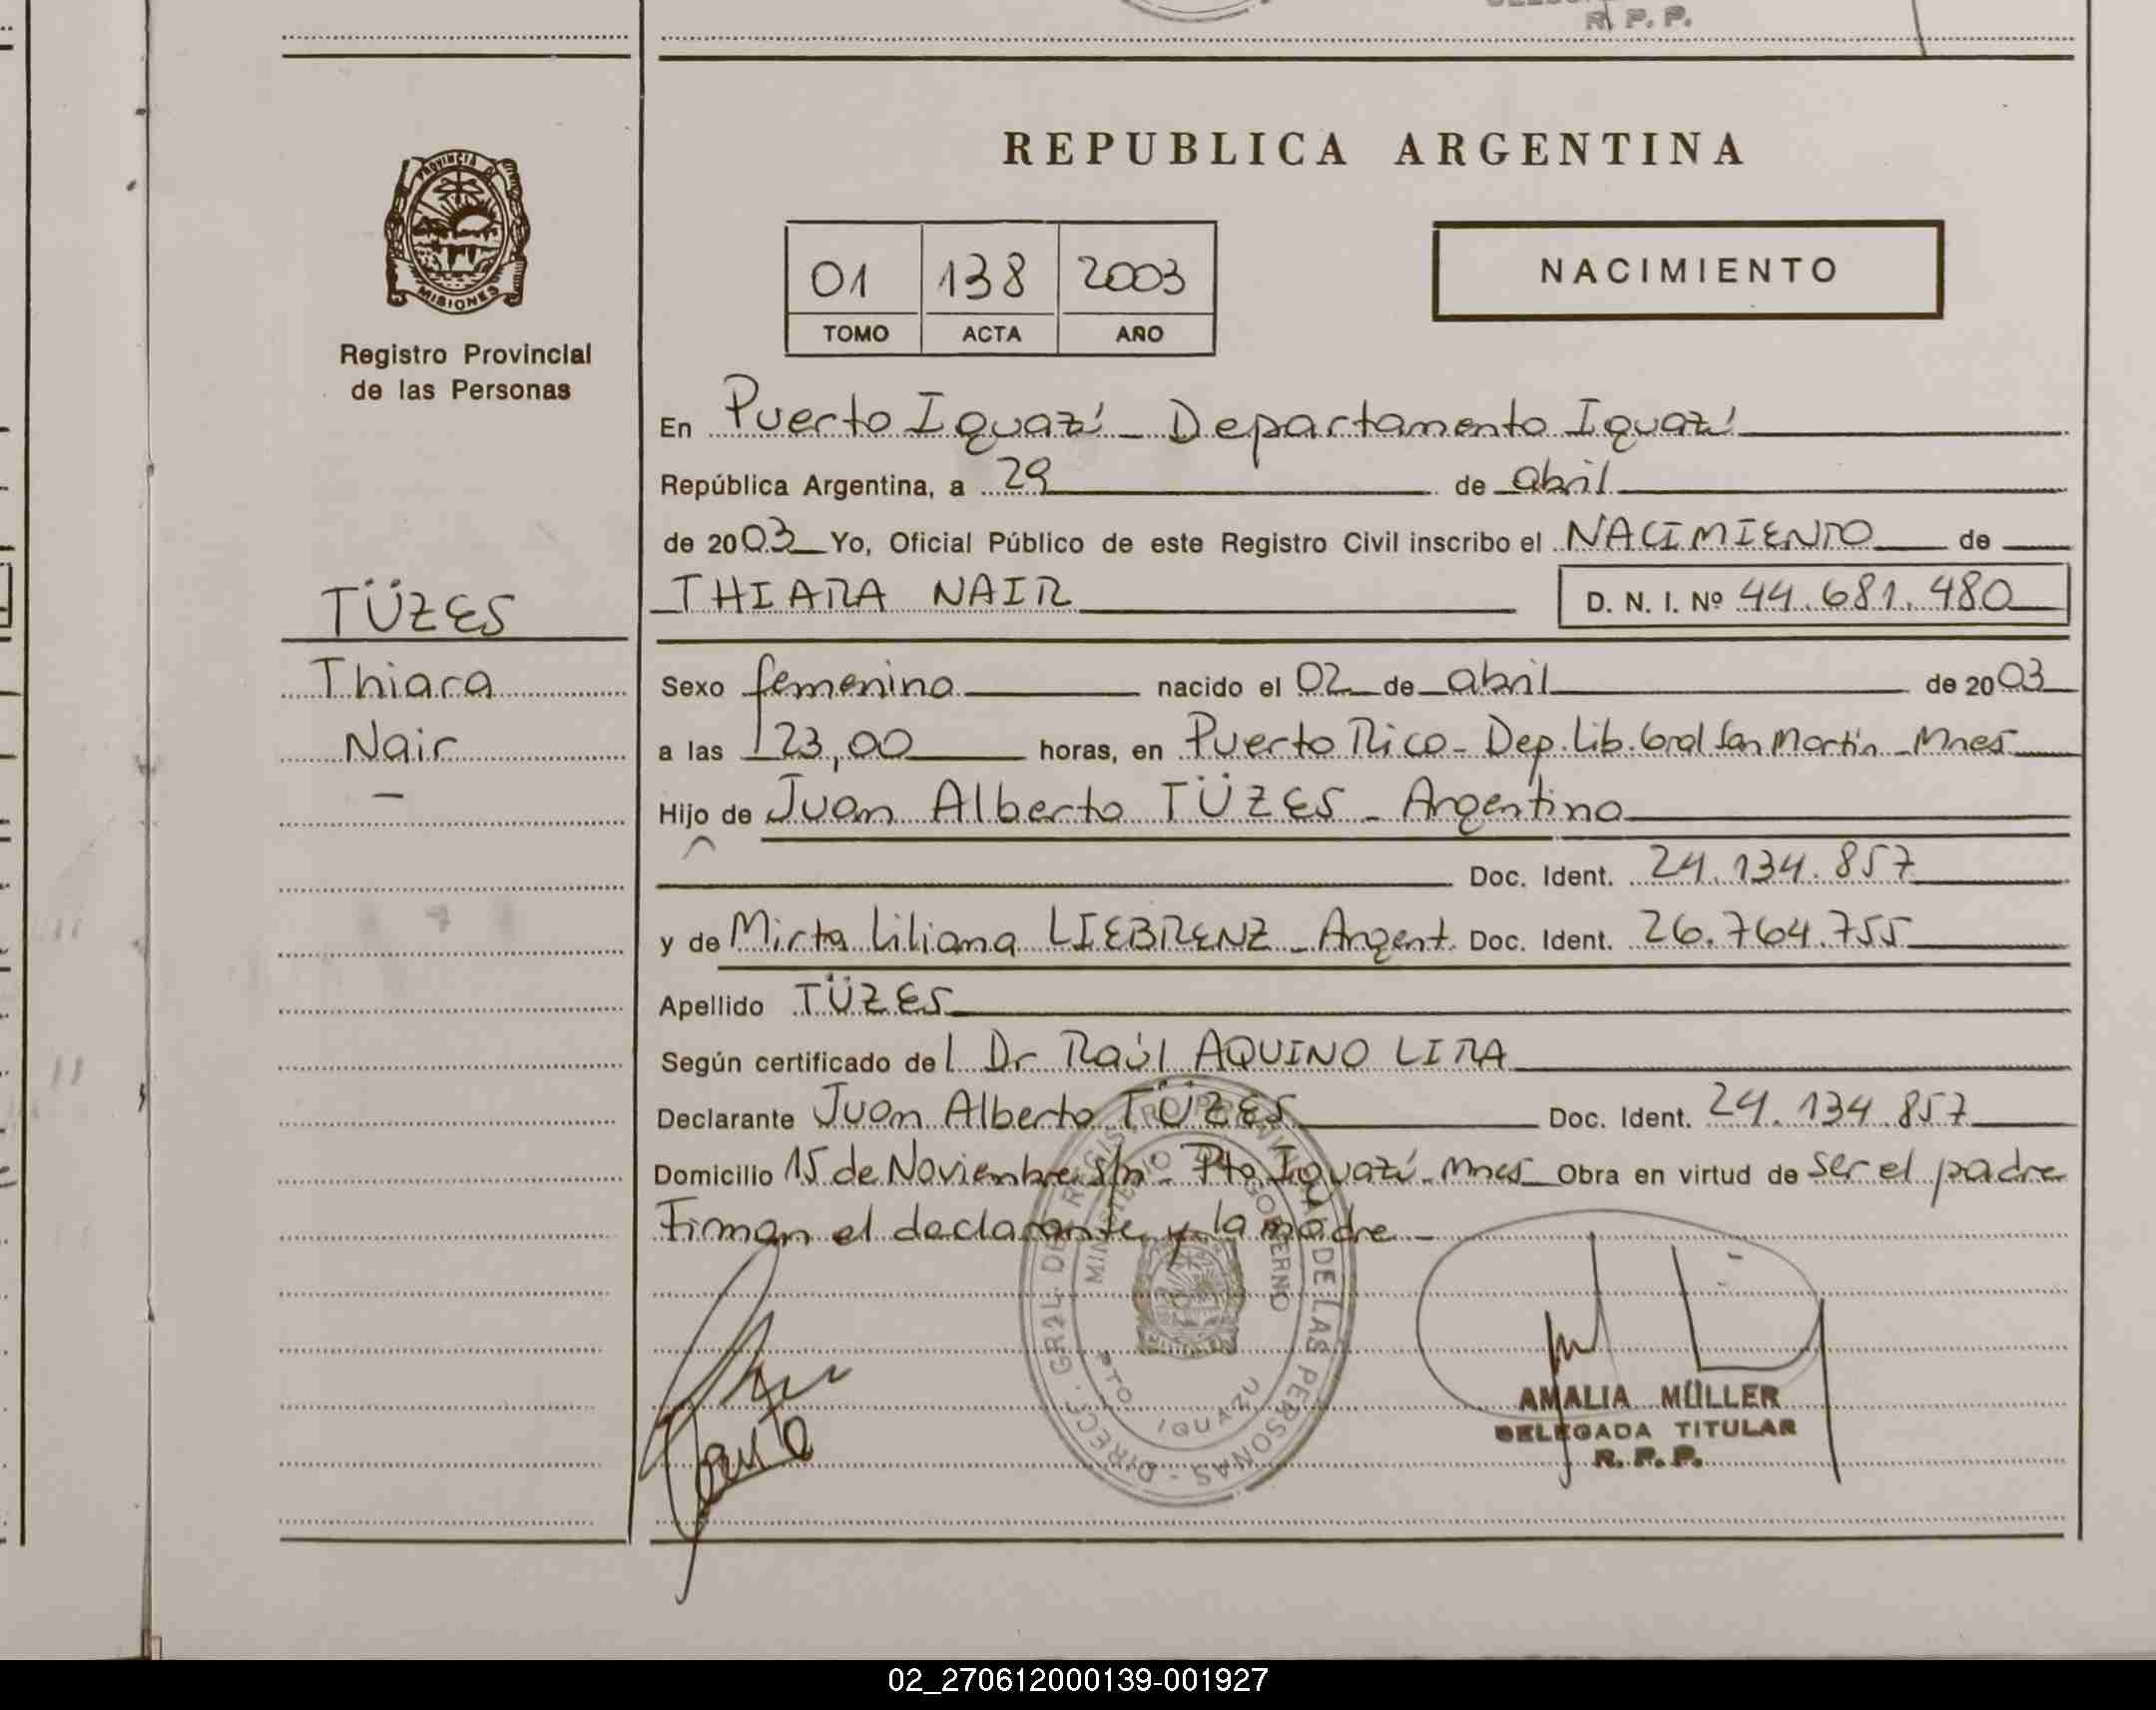 R. P. P.
REPUBLICA ARGENTINA
PROVINCIA DE
MISIONES
Registro Provincial
de las Personas
01 138 2003
TOMO ACTA AÑO
NACIMIENTO
En Puerto Iguazú - Departamento Iguazú
República Argentina, a 29 de abril
de 2003 Yo, Oficial Público de este Registro Civil inscribo el NACIMIENTO de
THIARA NAIR D. N. I. Nº 44.681.480
TÜZES
Thiara
Nair
-
Sexo femenino nacido el 02 de abril de 2003
a las 23,00 horas, en Puerto Rico - Dep. Lib. Gral San Martín - Mnes
Hijo de Juan Alberto TÜZES - Argentino
Doc. Ident. 24.134.857
y de Mirta Liliana LIEBRENZ - Argent. Doc. Ident. 26.764.755
Apellido TÜZES
Según certificado del Dr Raúl AQUINO LIRA
Declarante Juan Alberto TÜZES Doc. Ident. 24.134.857
Domicilio 15 de Noviembre s/n - Pto. Iguazú - Mnes Obra en virtud de ser el padre
Firman el declarante y la madre -
DIRECC. GRAL. DEL REGISTRO PROVINCIAL DE LAS PERSONAS -
MINISTERIO DE GOBIERNO
PTO IGUAZU
AMALIA MÜLLER
DELEGADA TITULAR
R. P. P.
02_270612000139-001927